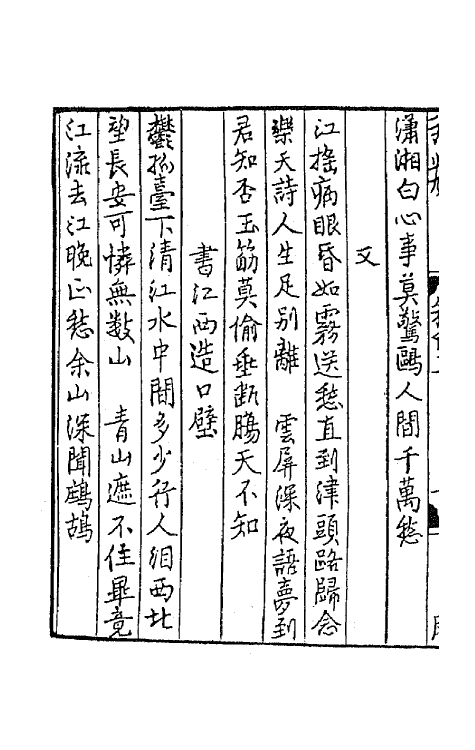 瀟湘白心事莫驚鷗人間千萬愁
又
江搖病眼昏如霧送愁直到津頭路歸念
樂天詩人生足別離　雲屏深夜語夢到
君知否玉筯莫偷垂斷腸天不知
書江西造口壁
鬱孤臺下清江水中間多少行人淚西北
望長安可憐無數山　青山遮不住畢竟
江流去江晚正愁余山深聞鷓鴣